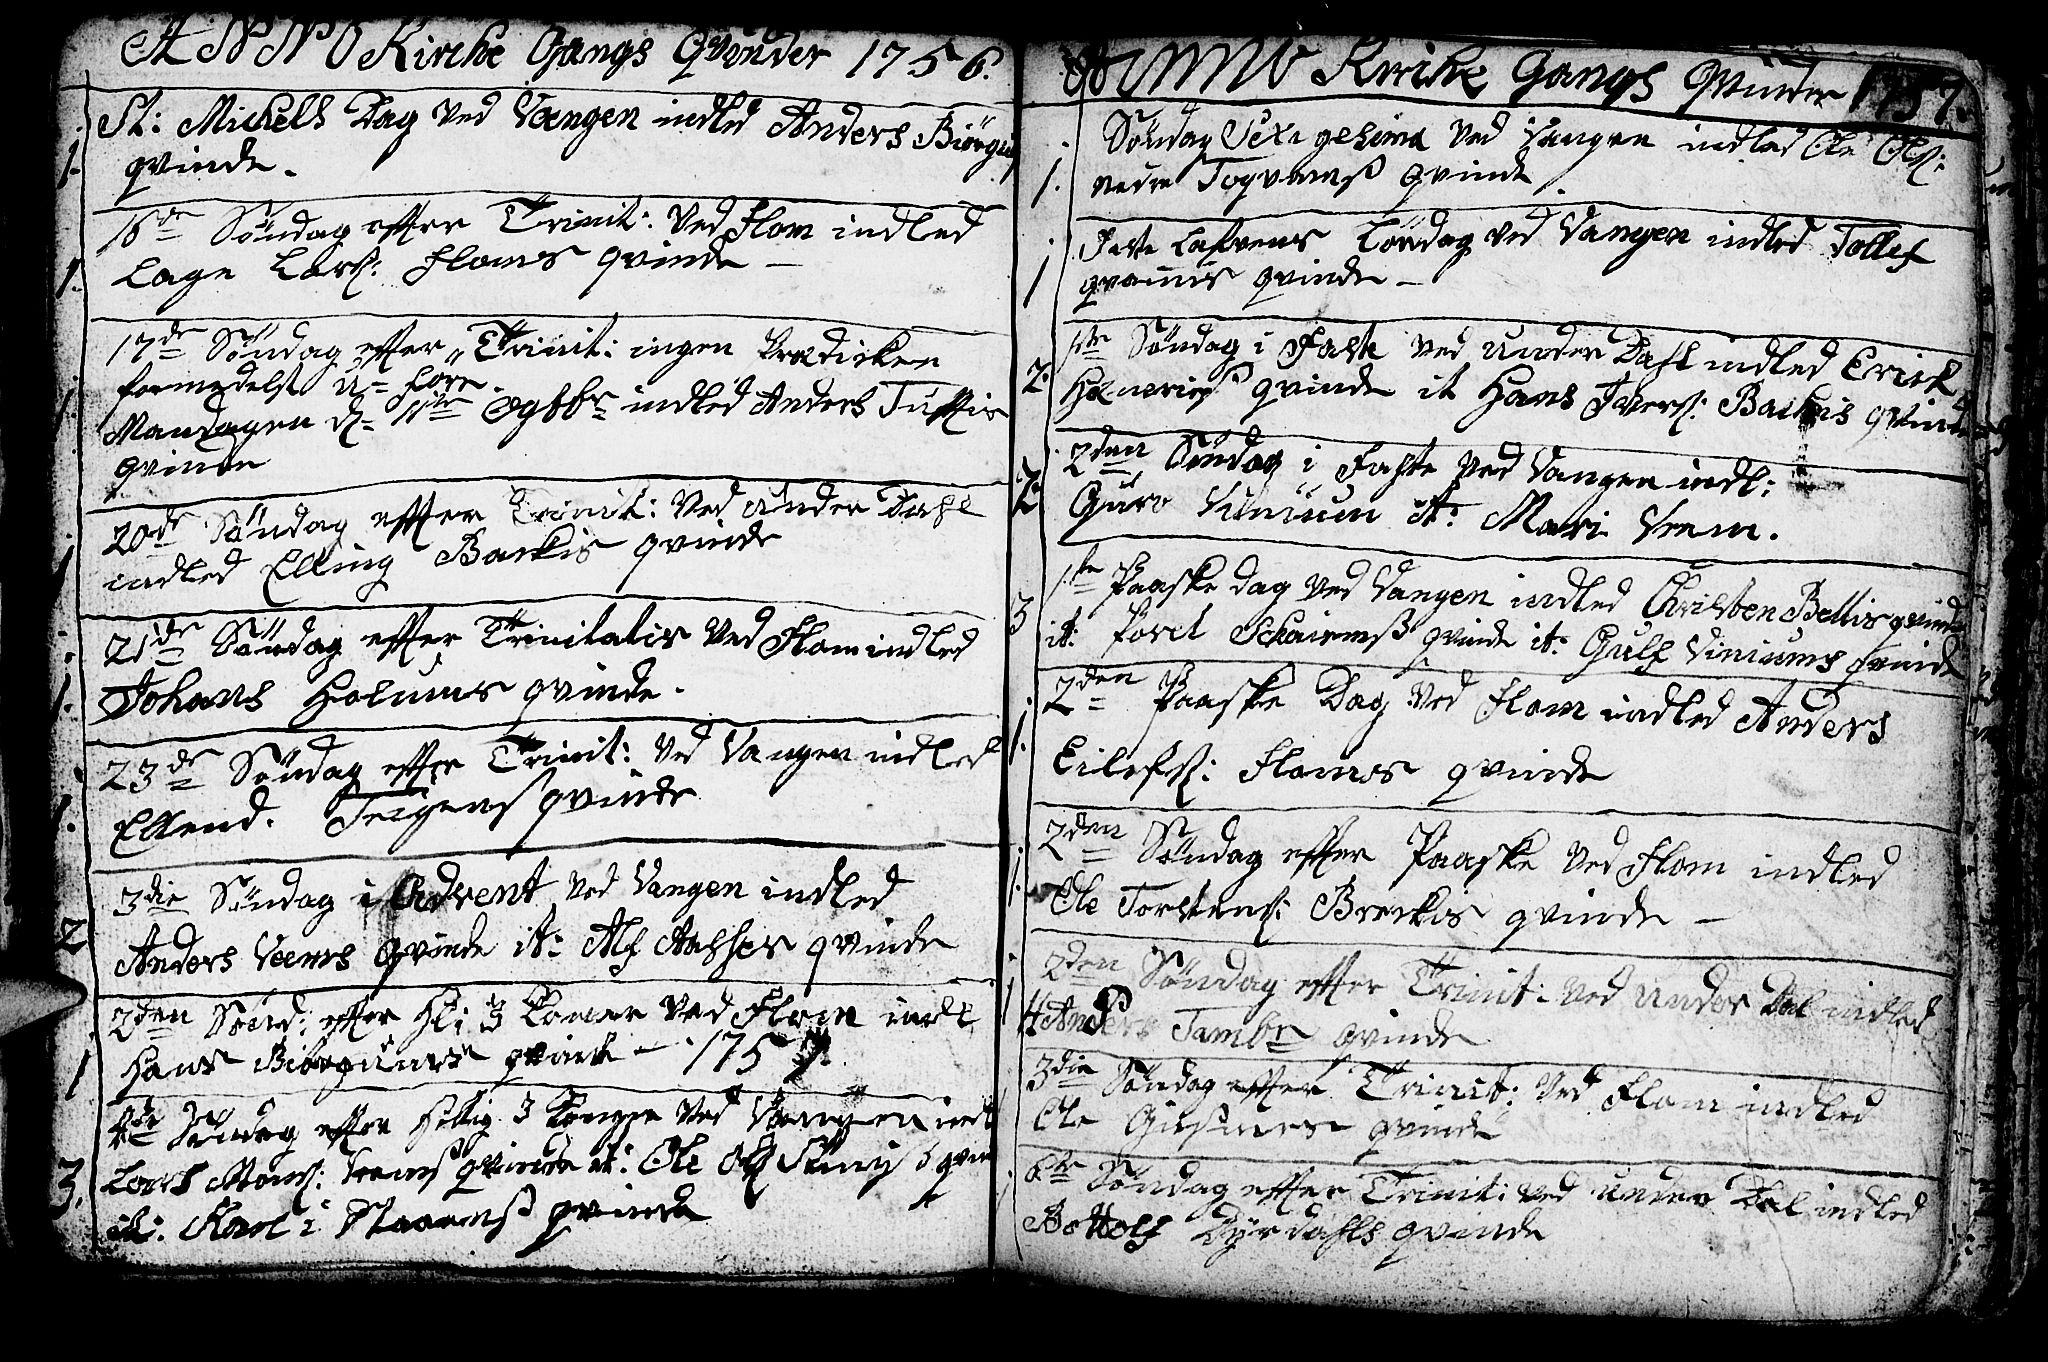 ANNO Kirche Gangs Qvinder 1756.
St: Michels Dag ved Vangen indled Anders Biørgu
1. qvinde.
16de Søndag effter Trinit: ved Flom indled
1. Lage Lars: Floms qvinde –
17de Søndag effter Trinit: ingen Prædicken
formedelst u=føre.
1. Mandagen d= 11te Ogtbr indled Anders Tufftis
qvinde
20de Søndag effter Trinit: ved under Dahl
1 indled Elling Backis qvinde
21de Søndag effter Trinitatis ved Flom indled
1. Johans Holums qvinde.
23de Søndag effter Trinit: ved Vangen indled
1. Ellend. Teigens qvinde
3die Søndag i Advent ved Vangen indled
2 Anders Veems qvinde it: Alf Aasses qvinde
2den Sønd: effter Hl: 3 Konger ved Flom indl
1 Hans qvinde – 1757.
4de Søndag effter Hellig 3 Konger ved Vangen indl
Lars Mons: qvinde it: Ole
3. it: i qvinde
ANNO Kirche Gangs Qvinder 1757.
Søndag Sexagesima ved Vangen indled Ole Ols:
1. nedre qvinde.
Faste Lafvens Løverdag ved Vangen indled Tollef
1 qvamis qvinde –
1te Søndag i Faste ved under Dahl indled Erick
2. qvinde it Hans Ivers: Backis qvinde
2den Søndag i Faste ved Vangen indl:
2 Guro Vinium it: Mari Veem.
1te Paaske dag ved Vangen indled Christen Bellis qvinde
3 it: qvinde it: Gulf Viniums qvinde
2den Paaske Dag ved Flom indled Anders
1. Eilefs: Floms qvinde
2den Søndag effter Paaske ved Flom indled
1. Ole Torstens: Breckis qvinde –
2den Søndag effter Trinit: ved under Dal indled
1 Anders qvinde
3die Søndag effter Trinit: ved Flom indled
Ole qvinde
6te Søndag effter Trinit: ved under Dal indled
1 Bottolf Dyrdahls qvinde